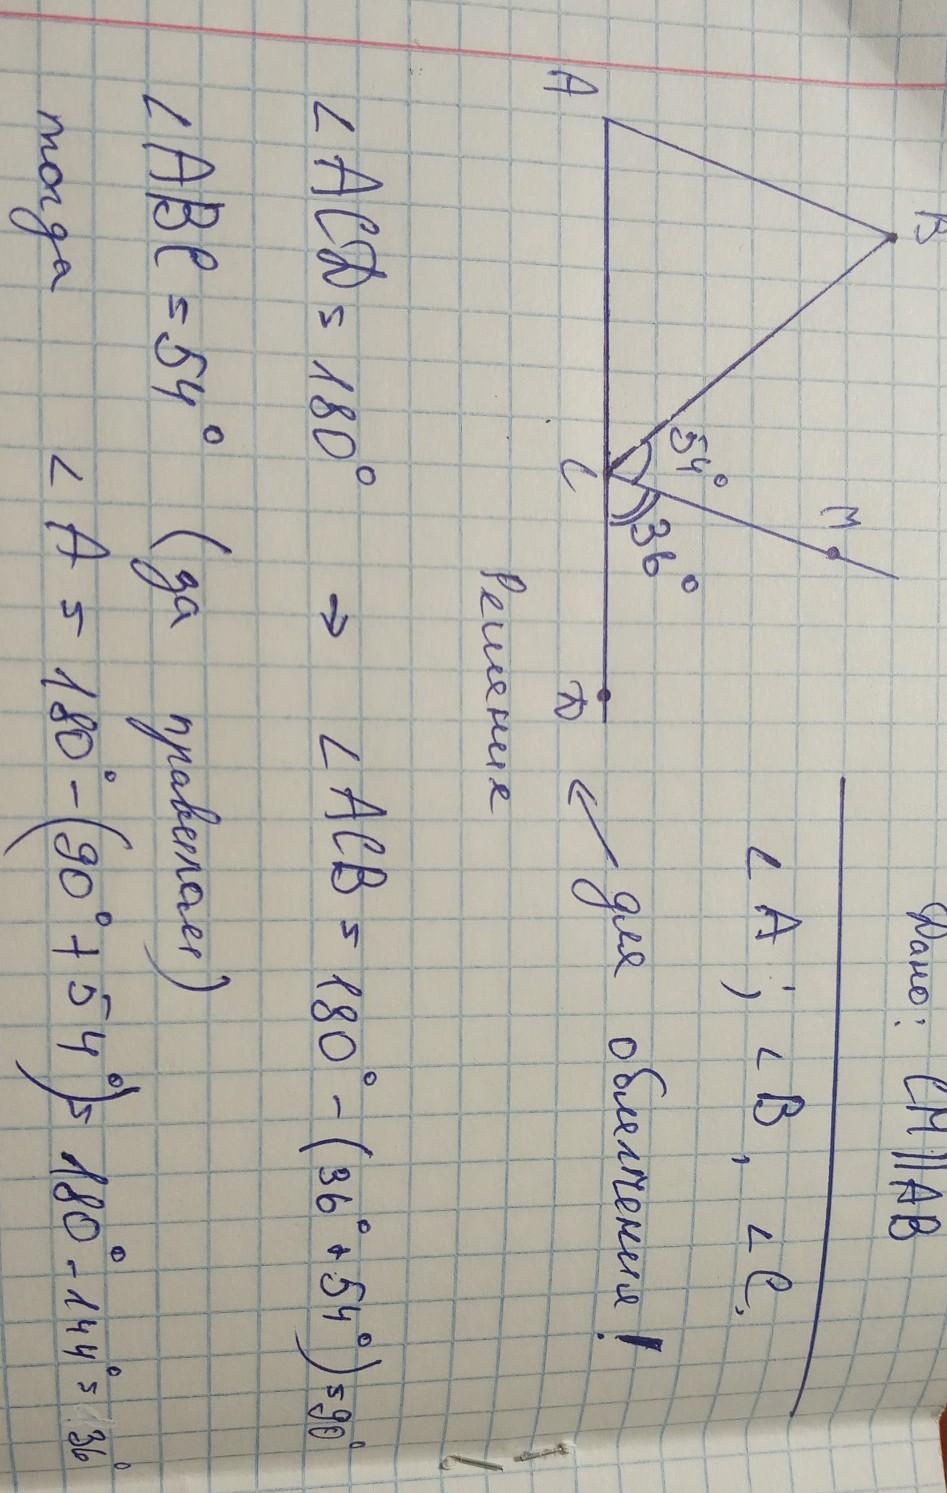 Дано: CM || AB
∠A; ∠B, ∠C.
A
B
C
M
D
54°
36°
← для облегчения!
Решение
∠ACD = 180° → ∠ACB = 180° - (36° + 54°) = 90°
∠ABC = 54° (да правилам)
тогда ∠A = 180° - (90° + 54°) = 180° - 144° = 36°